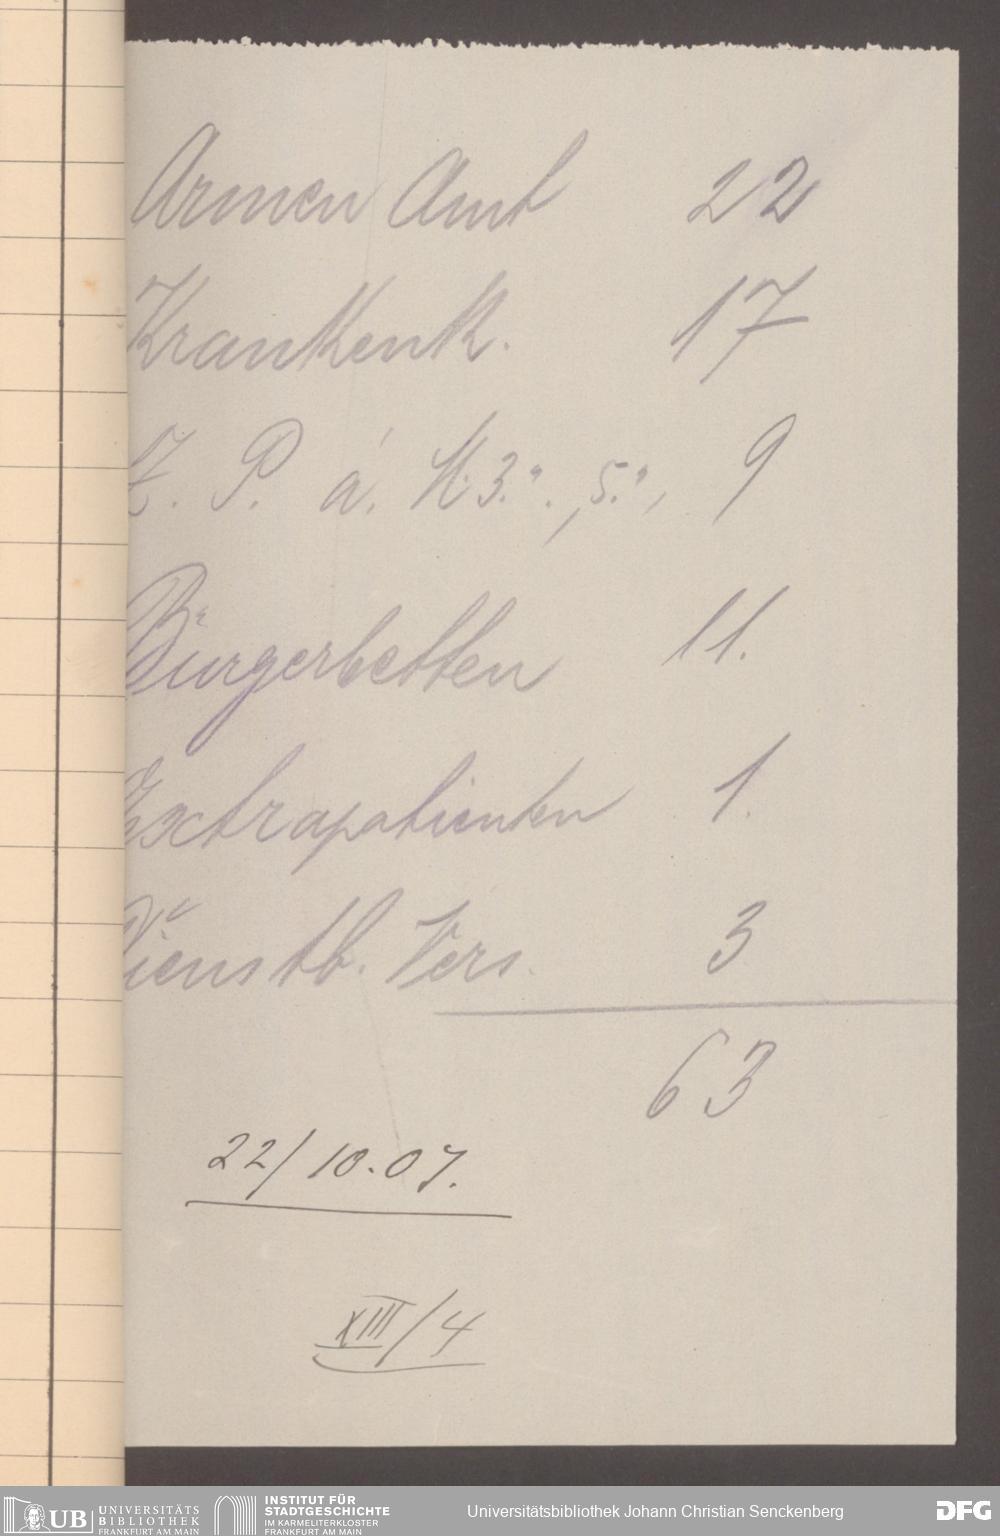 Armen Amt 22
Krankenk. 17
Z. P. á. M. 3.", 5.", 9
Bürgerbetten 11.
Extrapatienten 1.
Dienstb. Vers. 3
63
22/10.07.
XIII/4
UB UNIVERSITÄTS BIBLIOTHEK FRANKFURT AM MAIN
INSTITUT FÜR STADTGESCHICHTE IM KARMELITERKLOSTER FRANKFURT AM MAIN
Universitätsbibliothek Johann Christian Senckenberg
DFG